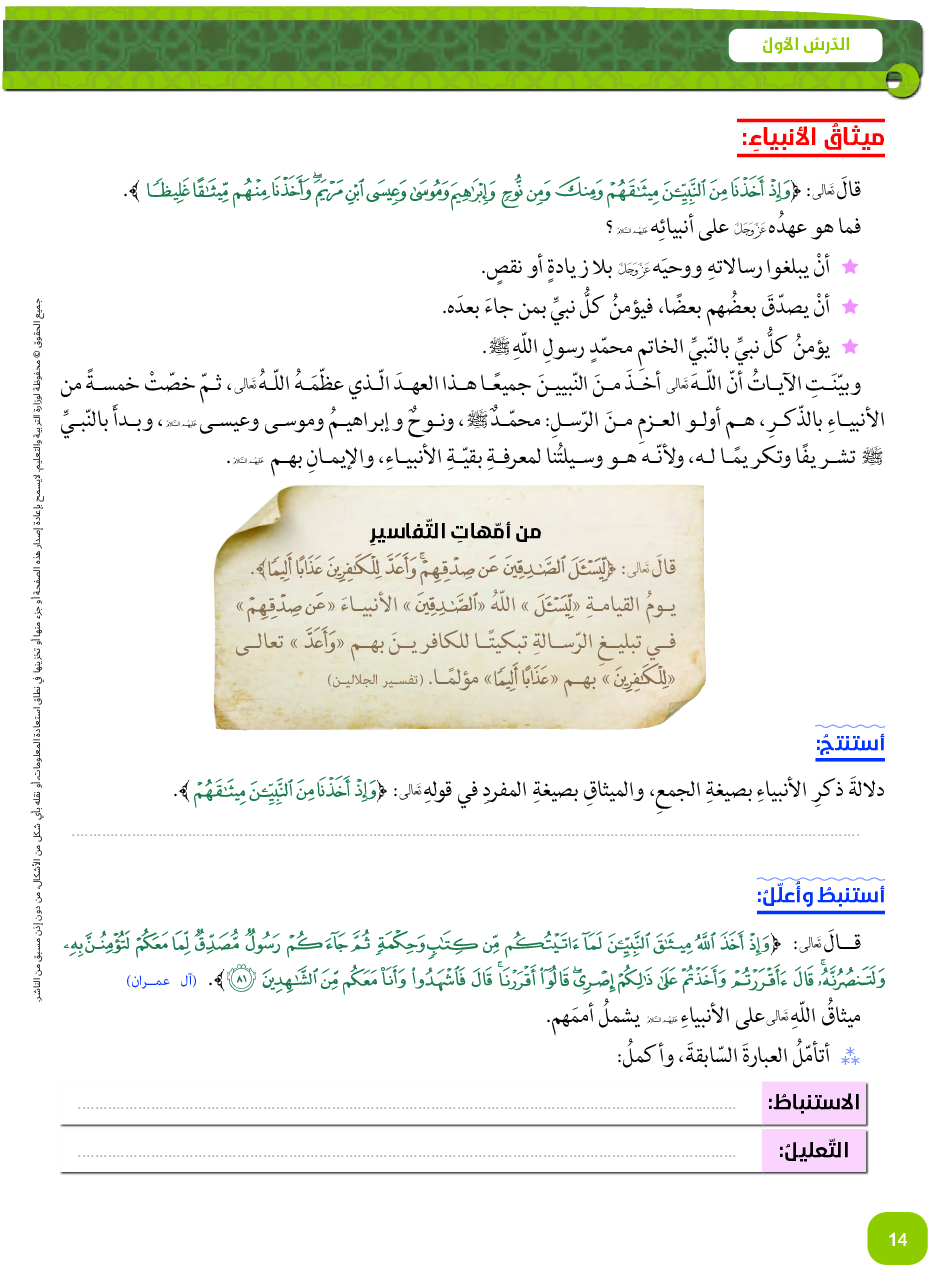 الدّرسُ الأولُ
ميثاقُ الأنبياءِ:
قالَ تعالى: ﴿وَإِذْ أَخَذْنَا مِنَ ٱلنَّبِيِّـۧنَ مِيثَٰقَهُمْ وَمِنكَ وَمِن نُّوحٍ وَإِبْرَٰهِيمَ وَمُوسَىٰ وَعِيسَى ٱبْنِ مَرْيَمَ ۖ وَأَخَذْنَا مِنْهُم مِّيثَٰقًا غَلِيظًا﴾.
فما هو عهدُه عَزَّ وَجَلَّ على أنبيائِه عليهم السلام ؟
★ أنْ يبلغوا رسالاتهِ ووحيَه عَزَّ وَجَلَّ بلا زيادةٍ أو نقصٍ.
★ أنْ يصدّقَ بعضُهم بعضًا، فيؤمنُ كلُّ نبيٍّ بمن جاءَ بعدَه.
★ يؤمنُ كلُّ نبيٍّ بالنّبيِّ الخاتمِ محمّدٍ رسولِ اللّهِ ﷺ.
وبيّنَتِ الآياتُ أنّ اللّهَ تعالى أخذَ منَ النّبيينَ جميعًا هذا العهدَ الّذي عظّمَهُ اللّهُ تعالى، ثمّ خصّتْ خمسةً من
الأنبياءِ بالذّكرِ، هم أولو العزمِ منَ الرّسلِ: محمّدٌ ﷺ، ونوحٌ وإبراهيمُ وموسى وعيسى عليهم السلام، وبدأَ بالنّبيِّ
ﷺ تشريفًا وتكريمًا له، ولأنّه هو وسيلتُنا لمعرفةِ بقيّةِ الأنبياءِ، والإيمانِ بهم عليهم السلام.
من أمّهاتِ التّفاسيرِ
قالَ تعالى: ﴿لِّيَسْـَٔلَ ٱلصَّٰدِقِينَ عَن صِدْقِهِمْ ۚ وَأَعَدَّ لِلْكَٰفِرِينَ عَذَابًا أَلِيمًا﴾.
يومُ القيامةِ «لِّيَسْـَٔلَ» اللّهُ «ٱلصَّٰدِقِينَ» الأنبياءَ «عَن صِدْقِهِمْ»
في تبليغِ الرّسالةِ تبكيتًا للكافرينَ بهم «وَأَعَدَّ» تعالى
«لِلْكَٰفِرِينَ» بهم «عَذَابًا أَلِيمًا» مؤلمًا. (تفسير الجلالين)
أستنتجُ:
دلالةَ ذكرِ الأنبياءِ بصيغةِ الجمعِ، والميثاقِ بصيغةِ المفردِ في قولهِ تعالى: ﴿وَإِذْ أَخَذْنَا مِنَ ٱلنَّبِيِّـۧنَ مِيثَٰقَهُمْ﴾.
أستنبطُ وأُعلّلُ:
قالَ تعالى: ﴿وَإِذْ أَخَذَ ٱللَّهُ مِيثَٰقَ ٱلنَّبِيِّـۧنَ لَمَآ ءَاتَيْتُكُم مِّن كِتَٰبٍ وَحِكْمَةٍ ثُمَّ جَآءَكُمْ رَسُولٌ مُّصَدِّقٌ لِّمَا مَعَكُمْ لَتُؤْمِنُنَّ بِهِۦ
وَلَتَنصُرُنَّهُۥ ۚ قَالَ ءَأَقْرَرْتُمْ وَأَخَذْتُمْ عَلَىٰ ذَٰلِكُمْ إِصْرِى ۖ قَالُوٓا۟ أَقْرَرْنَا ۚ قَالَ فَٱشْهَدُوا۟ وَأَنَا۠ مَعَكُم مِّنَ ٱلشَّٰهِدِينَ ٨١﴾. (آل عمران)
ميثاقُ اللّهِ تعالى على الأنبياءِ عليهم السلام يشملُ أممَهم.
أتأمّلُ العبارةَ السّابقةَ، وأكملُ:
الاستنباطُ:
التّعليلُ:
14
جميع الحقوق © محفوظة لوزارة التربية والتعليم. لايسمح بإعادة إصدار هذه الصفحة أو جزء منها أو تخزينها في نطاق استعادة المعلومات، أو نقله بأي شكل من الأشكال، من دون إذن مسبق من الناشر.